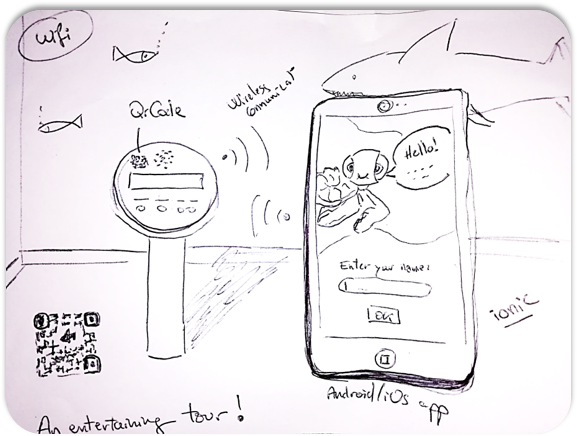 Wifi
QrCode
Wireless
Communicat
Hello!
Enter your name:
OK
ionic
Android/iOs app
An entertaining tour!